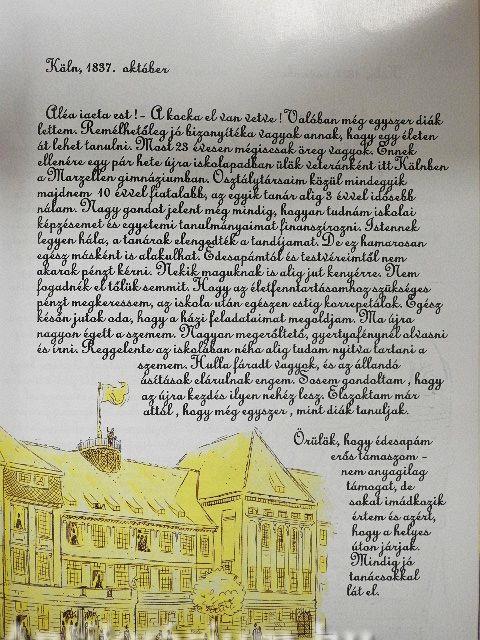 Köln, 1837. október
Aléa iacta est! - A kocka el van vetve! Valóban még egyszer diák
lettem. Remélhetőleg jó bizonyítéka vagyok annak, hogy egy életen
át lehet tanulni. Most 23 évesen mégiscsak öreg vagyok. Ennek
ellenére egy pár hete újra iskolapadban ülök veteránként itt Kölnben
a Marzellen gimnáziumban. Osztálytársaim közül mindegyik
majdnem 10 évvel fiatalabb, az egyik tanár alig 3 évvel idősebb
nálam. Nagy gondot jelent még mindig, hogyan tudnám iskolai
képzésemet és egyetemi tanulmányaimat finanszírozni. Istennek
legyen hála, a tanárok elengedték a tandíjamat. De ez hamarosan
egész másként is alakulhat. Édesapámtól és testvéreimtől nem
akarok pénzt kérni. Nekik maguknak is alig jut kenyérre. Nem
fogadnék el tőlük semmit. Hogy az életfenntartásomhoz szükséges
pénzt megkeressem, az iskola után egészen estig korrepetálok. Egész
későn jutok oda, hogy a házi feladataimat megoldjam. Ma újra
nagyon égett a szemem. Nagyon megerőltető, gyertyafénynél olvasni
és írni. Reggelente az iskolában néha alig tudom nyitva tartani a
szemem. Hulla fáradt vagyok, és az állandó
ásítások elárulnak engem. Sosem gondoltam, hogy
az újra kezdés ilyen nehéz lesz. Elszoktam már
attól, hogy még egyszer, mint diák tanuljak.
Örülök, hogy édesapám
erős támaszom -
nem anyagilag
támogat, de
sokat imádkozik
értem és azért,
hogy a helyes
úton járjak.
Mindig jó
tanácsokkal
lát el.